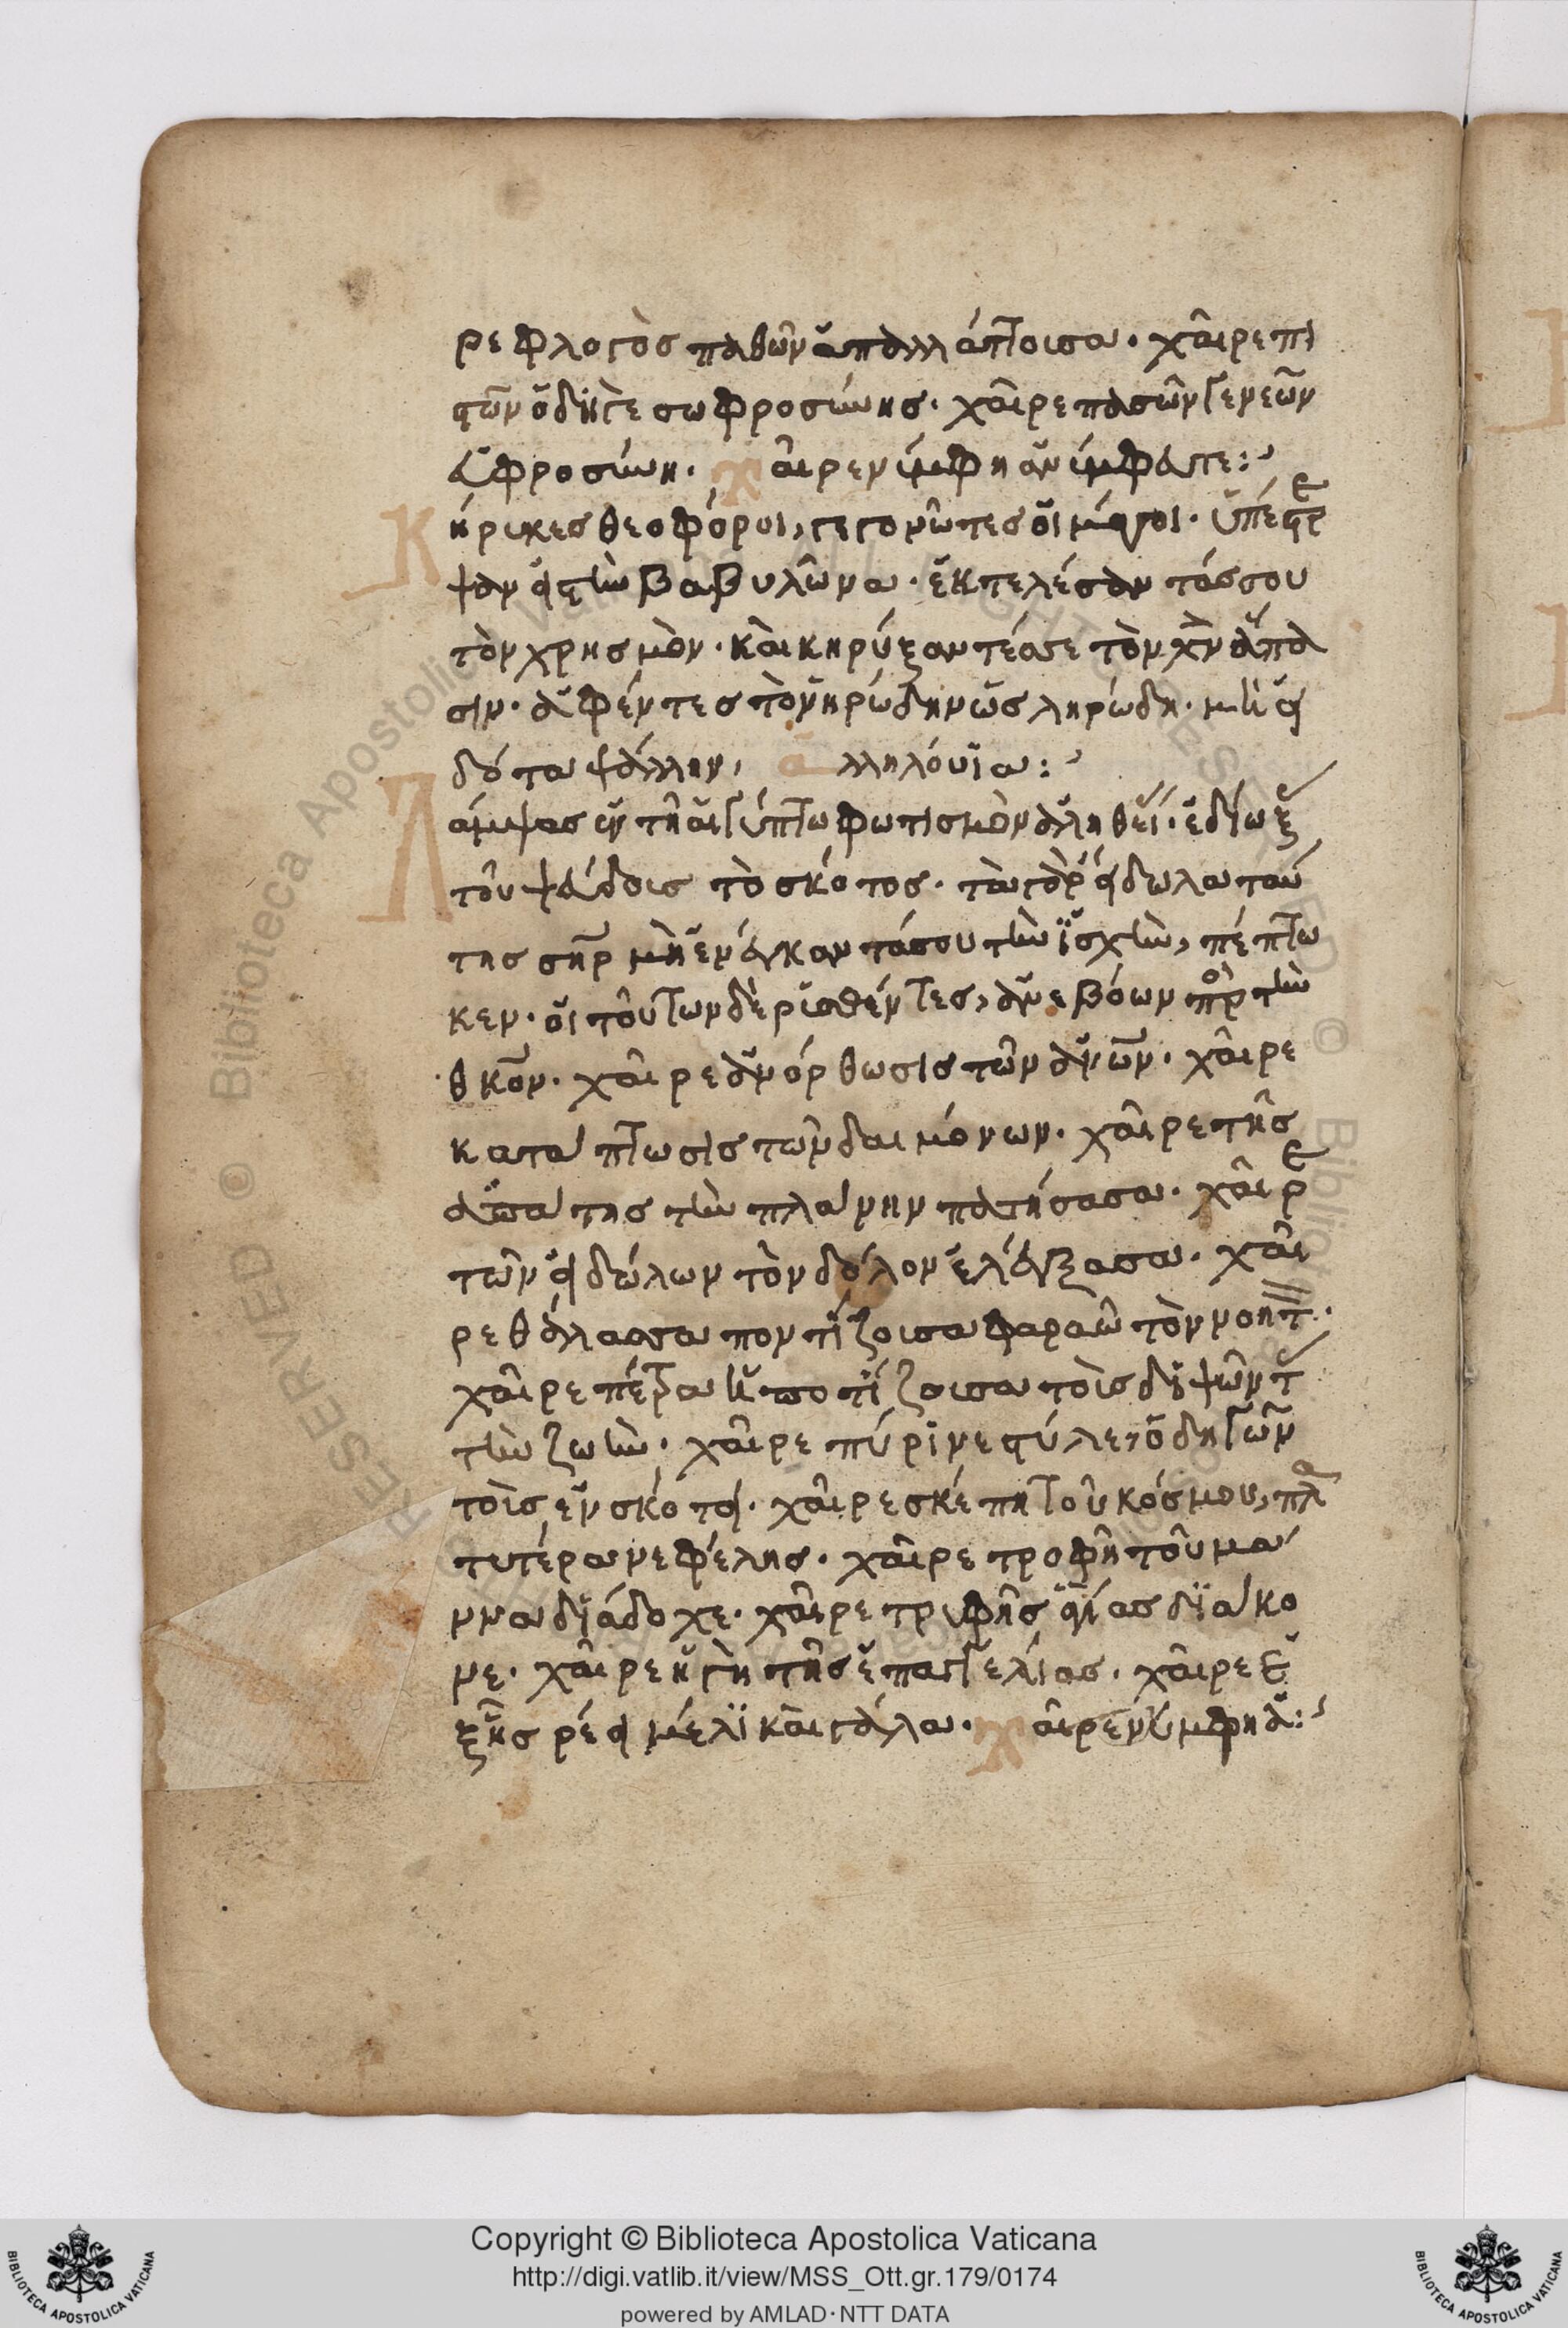 ρε φλογὸς παθῶν ἀπαλλάττοισα· χαῖρε πι
στῶν ὁδηγὲ σωφροσύνης· χαῖρε πασῶν γενεῶν
εὐφροσύνη· χαῖρε νύμφη ἀνύμφευτε:
Κήρυκες θεοφόροι, γεγονῶτες οἱ μάγοι· ὑπέστρε
ψαν εἰς τὴν Βαβυλῶνα· ἐκτελέσαν τές σου
τὸν χρησμὸν· καὶ κηρύξαντές σε τὸν χν ἅπα
σιν· ἀφέντες τὸν ἡρώδην ὡς ληρώδη· μὴ εἰ
δότα ψάλλην, ἀλληλούϊα:
Λάμψας ἐν τῇ αἰγύπτω φωτισμὸν ἀληθεί· ἐδίωξ
τοῦ ψεύδοις τὸ σκότος· τὰ γὰρ εἴδωλα ταύ
της σηρ μὴ ἐνέγκαντά σου τὴν ἰσχὴν, πέπτω
κεν· οἱ τούτων δὲ ῥισθέντες, ἀνεβόων πρ τὴν
θκον· χαῖρε ἀνόρθωσις τῶν ἀνων· χαῖρε
κατάπτωσις τῶν δαιμόνων· χαῖρε τῆς
ἀπάτης τὴν πλάνην πατήσασα· χαῖρε
τῶν εἰδώλων τὸν δόλον ἐλέγξασα· χαῖ
ρε θάλασσα ποντίζοισα φαραῶ τὸν νοητ·
χαῖρε πέτρα ἡ ποτίζοισα τοῖς διψῶντ
τὴν ζωὴν· χαῖρε πύρινε στύλε, ὁδηγῶν
τοῖς ἐν σκότει· χαῖρε σκέπη τοῦ κόσμου, πλα
τυτέρα νεφέλης· χαῖρε τροφὴ τοῦ μά
ννα διάδοχε· χαῖρε τρυφῆς ἁγίας διάκο
νε· χαῖρε ἡ γῆ τῆς ἐπαγγελίας· χαῖρε ἐ
ξ ἧς ρέει μέλι καὶ γάλα· χαῖρε νύμφη ἀ:
Copyright © Biblioteca Apostolica Vaticana
http://digi.vatlib.it/view/MSS_Ott.gr.179/0174
powered by AMLAD·NTT DATA